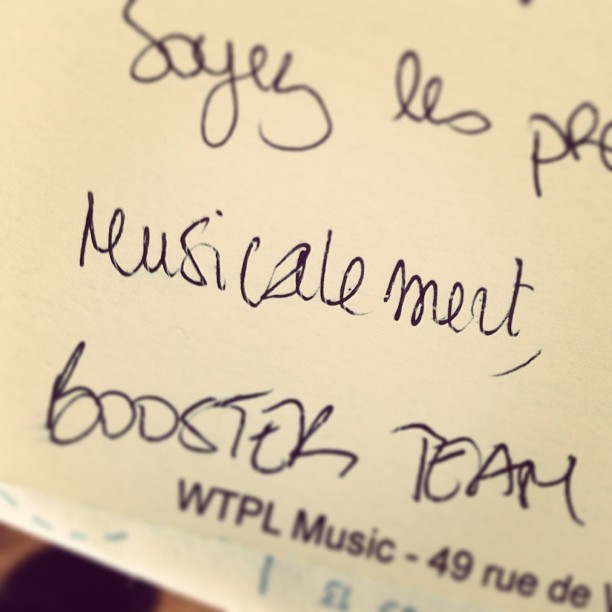 Soyez les
Musicalement,
BOOSTER TEAM
WTPL Music - 49 rue de